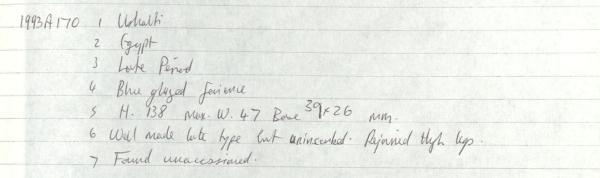 1993A170 1 Ushabti
2 Egypt
3 Late Period
4 Blue glazed faience
5 H. 138 Max. W. 47 Base 39x26 mm.
6 Well made late type but uninscribed. Rejoined thigh legs.
7 Found unaccessioned.